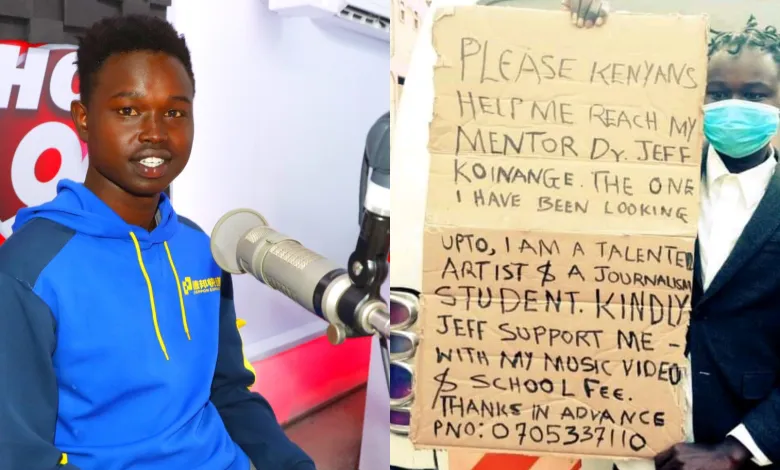 HO
9
PLEASE KENYANS
HELP ME REACH MY
MENTOR Dr. JEFF
KOINANGE. THE ONE
I HAVE BEEN LOOKING
UPTO, I AM A TALENTED
ARTIST & A JOURNALISM
STUDENT. KINDLY
JEFF SUPPORT ME -
WITH MY MUSIC VIDEO
& SCHOOL FEE.
THANKS IN ADVANCE
PNO: 0705337110